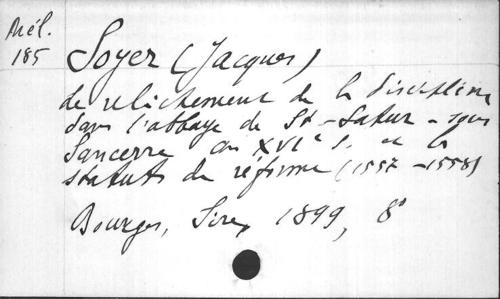 Mél.
185
Soyer (Jacques)
de relâchement de la discipline
dans l'abbaye de St-Satur-sous
Sancerre au XVIe s. et les
statuts de réforme (1557-1558)
Bourges, Sire, 1899, 8°